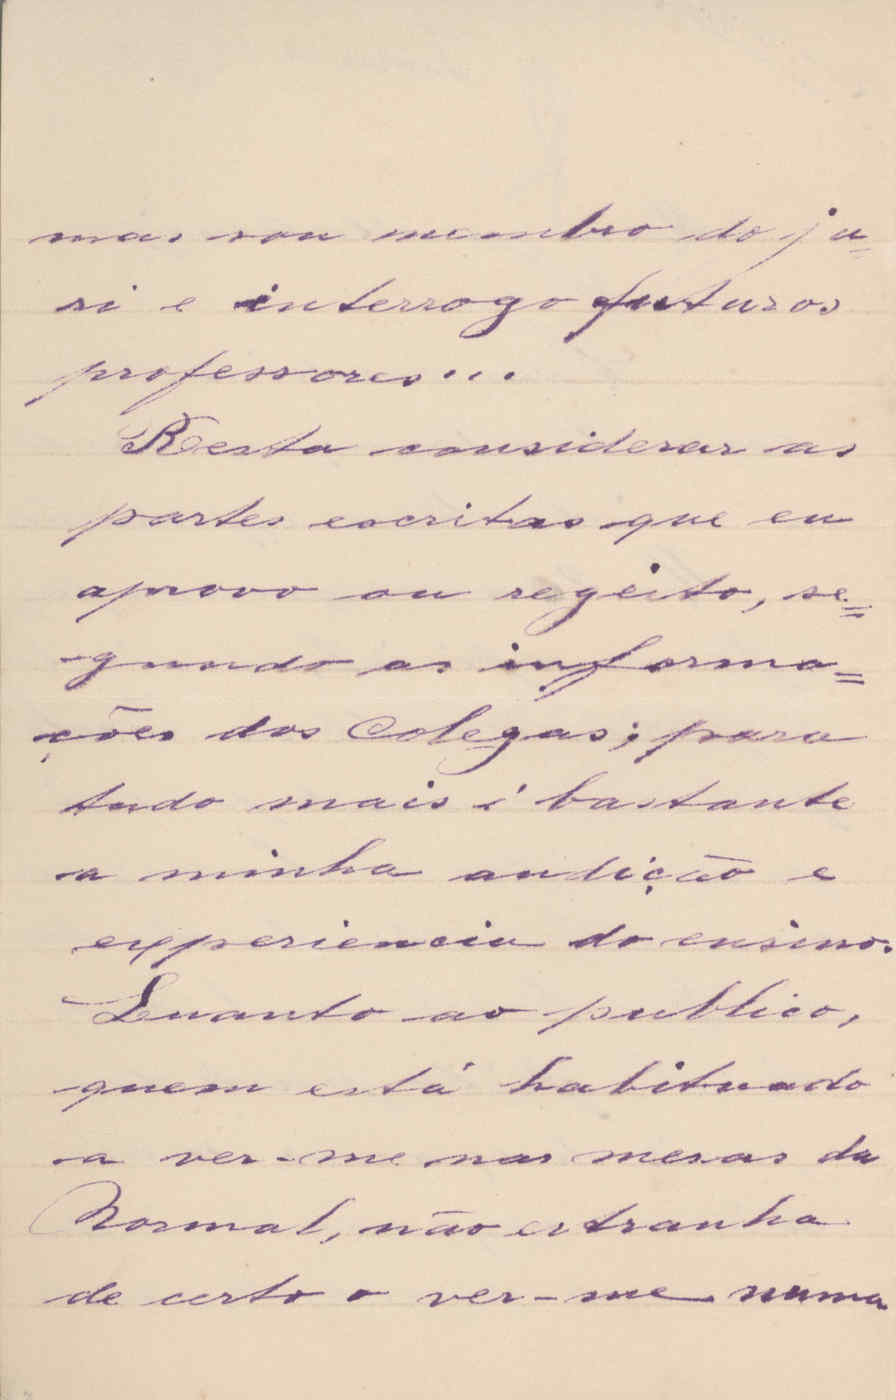 mas sou membro do ju=
ri e interrogo futuros
professores...
Resta considerar as
partes escritas que eu
aprovo ou regeito, se=
gundo as informa=
ções dos Colegas; para
tudo mais é bastante
a minha audição e
experiencia do ensino.
Quanto ao publico,
quem está habituado
a ver-me nas mesas da
Normal, não estranha
de certo o ver-me numa